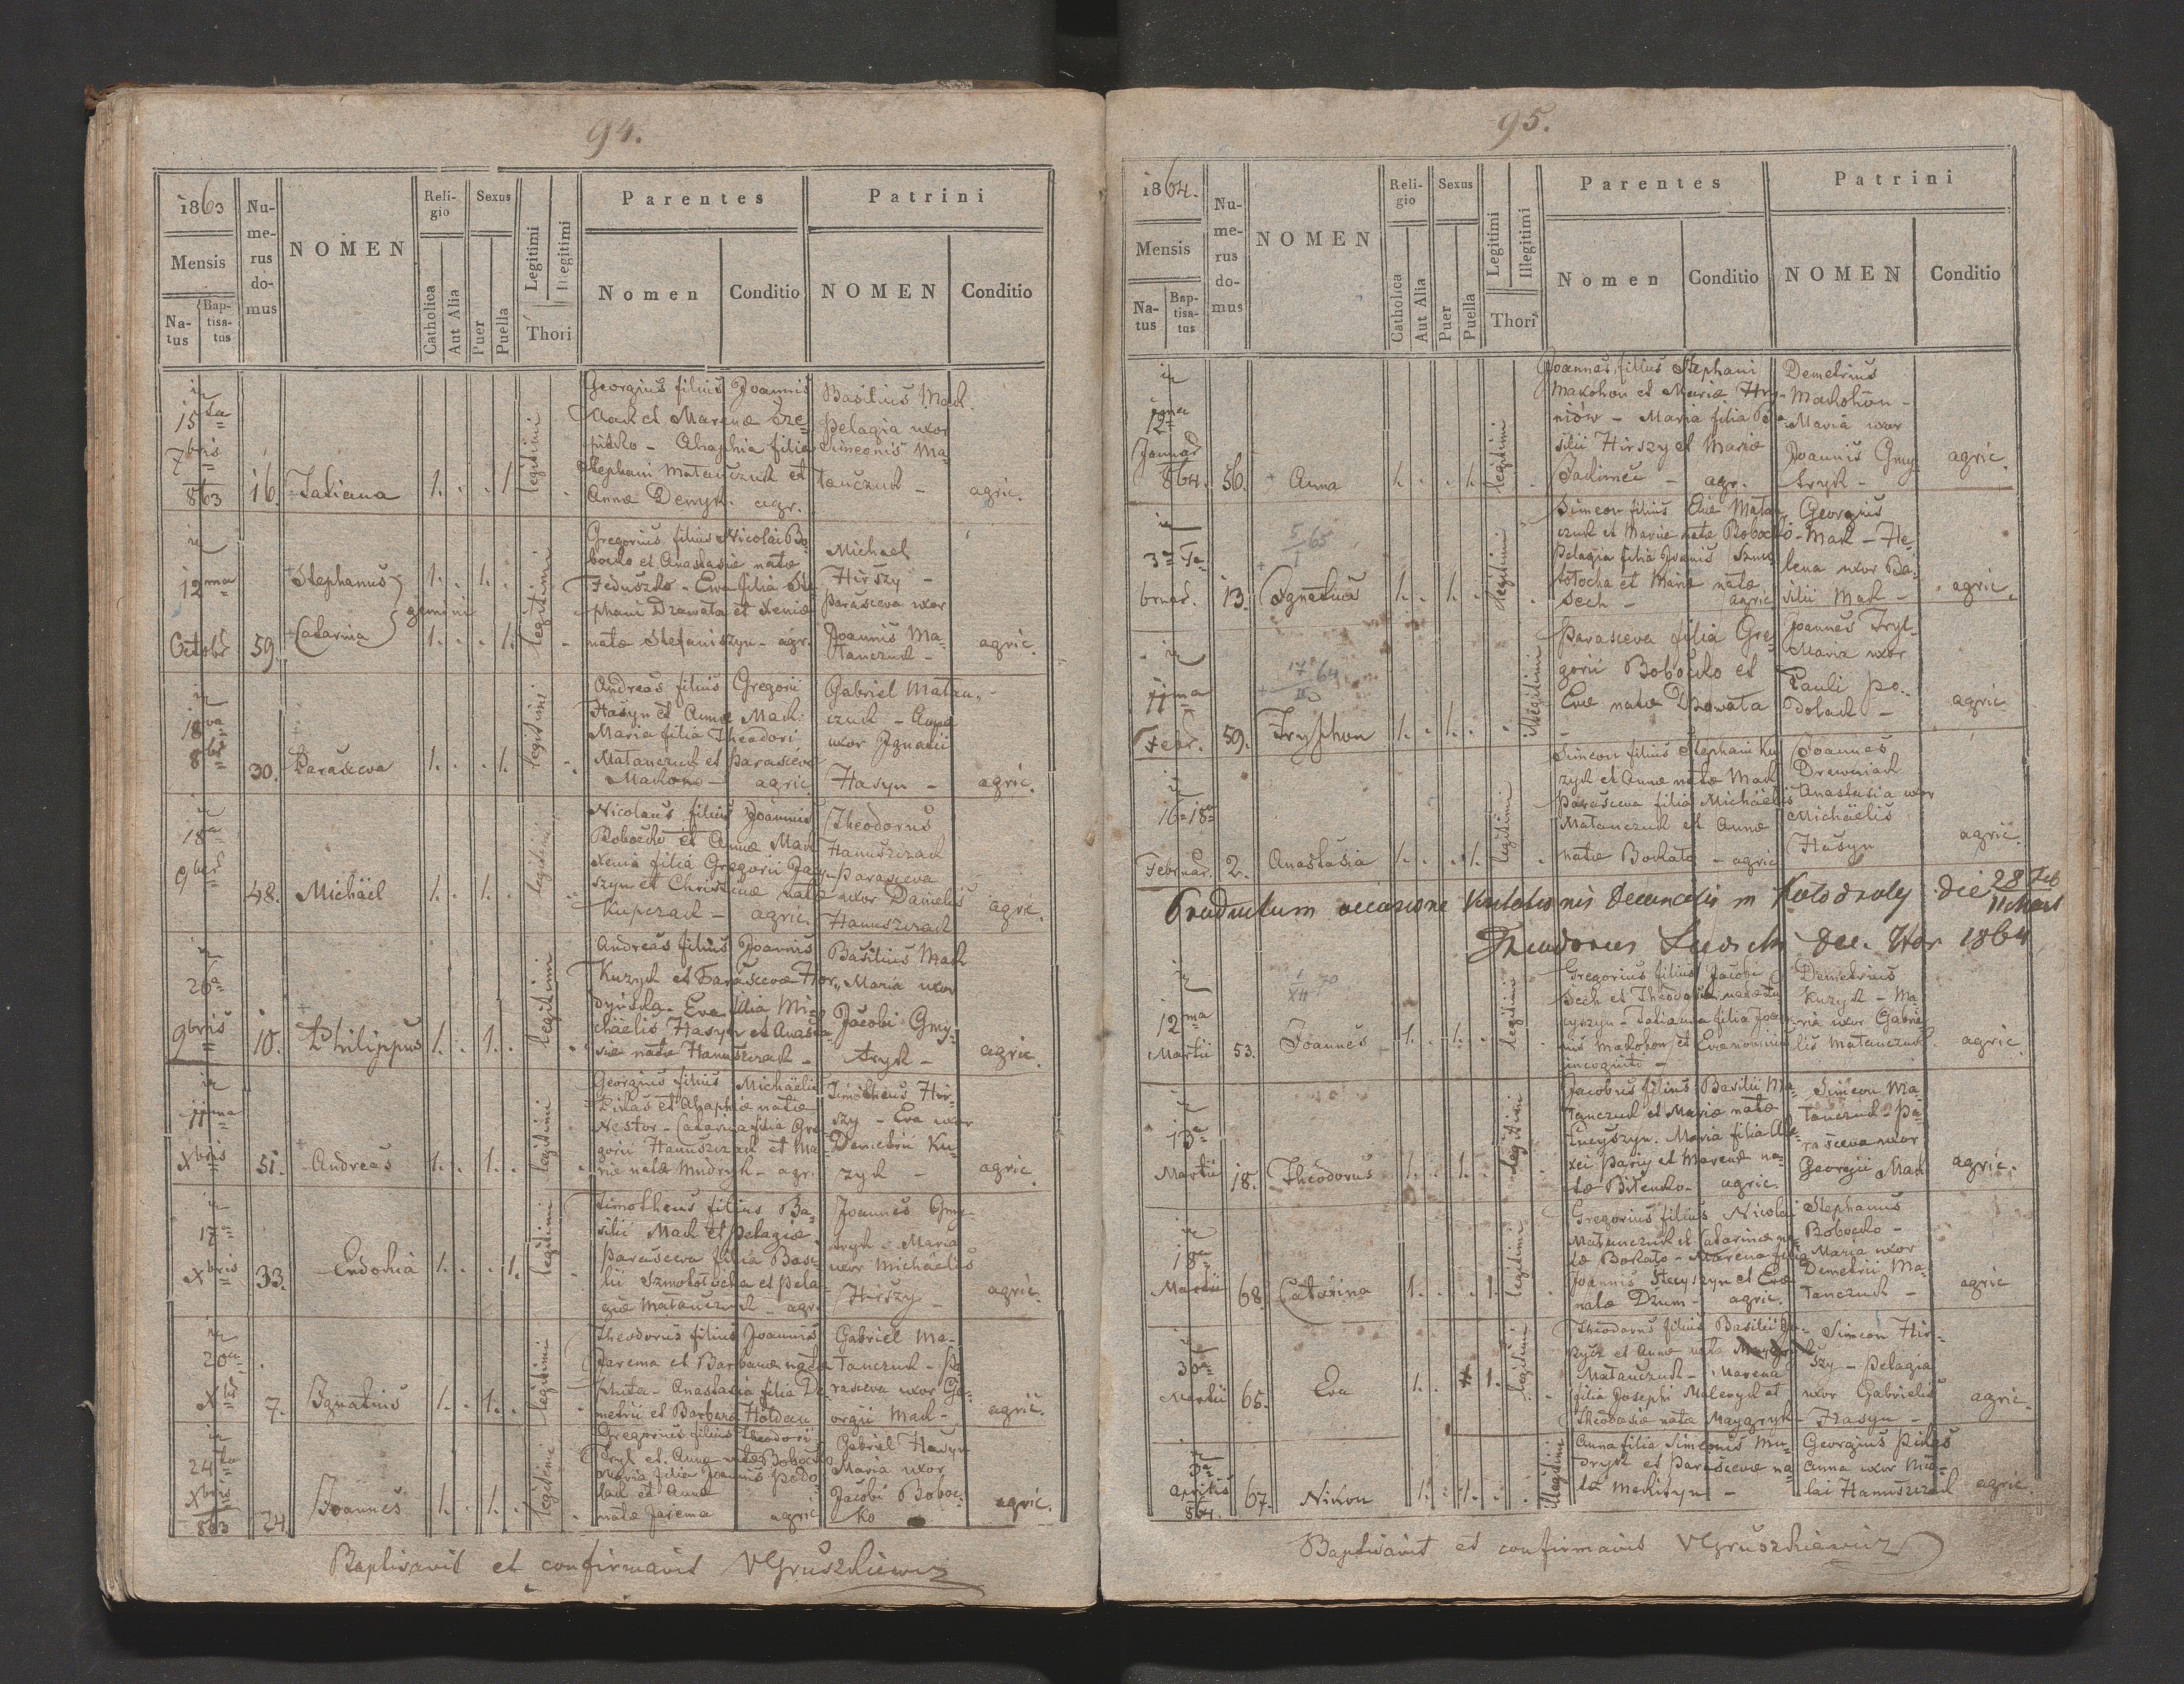 94.
1863
Mensis
Na-
tus
Bap-
tisa-
tus
Nu-
me-
rus
do-
mus
NOMEN
Reli-
gio
Catholica
Aut Alia
Sexus
Puer
Puella
Legitimi
Illegitimi
Thori
Parentes
Nomen
Conditio
Patrini
NOMEN
Conditio
in
15ta
7bris
863
16.
Tatiana
1. . . 1.
legitimi
Georgius filius Joannis
Mak et Marenæ Sze-
pitko - Ahaphia filia
Stephani Matanczuk et
Annæ Demyk. agr.
Basilius Mak.
Pelagia uxor
Simeonis Ma-
tanczuk -
agric.
in
12ma
Octobr
59.
Stephanus
Catarina
gemini
1. . 1. .
1. . . 1.
legitimi
Gregorius filius Nicolai Bo-
bocko et Anastasiæ natæ
Feduszko - Eva filia Ste-
phani Drawata et Xeniæ
natæ Stefaniszyn - agr.
Michael
Hirszy -
Parasceva uxor
Joannis Ma-
tanczuk -
agric.
in
18va
8br
30.
Parasceva
1. . . 1.
legitimi
Andreas filius Gregorii
Hasyn et Annæ Mak.
Maria filia Theodori
Matanczuk et Parascevæ
agric.
Gabriel Matan-
czuk - Anna
uxor Ignatii
Hasyn -
agric.
in
18a
9br
48.
Michäel
1. . 1. .
legitimi
Nicolaus filius Joannis
Bobocko et Annæ Mak
Xenia filia Gregorii
szyn et Christinæ natæ
Kupczak - agric.
Theodorus
Hanuszczak
Parasceva
uxor Danielis
Hanuszczak
agric.
in
26a
9bris
10.
Philippus
1. . 1. .
legitimi
Andreas filius Joannis
Kuzyk et Parascevæ Hor-
dyńska - Eva filia Mi-
chäelis Hasyn et Anasta-
siæ natæ Hanuszczak -
Basilius Mak
Maria uxor
Jacobi Gmy-
tryk -
agric.
in
11ma
Xbris
51.
Andreas
1. . 1. .
legitimi
Georgius filius Michäelis
Pikas et Ahaphiæ natæ
Nestor - Catarina filia Gre-
gorii Hanuszczak et Ma-
riæ natæ Mudryk - agr.
Timotheus Hir-
szy - Eva uxor
Demetrii Ku-
zyk -
agric.
in
17a
Xbris
33.
Eudokia
1. . . 1.
legitimi
Timotheus filius Ba-
silii Mak et Pelagiæ
Parasceva filia Basi-
lii Szmołołocha et Pela-
giæ Matanczuk - agr.
Joannes Gmy-
tryk - Maria
uxor Michäelis
Hirszy -
agric.
in
20a
Xbr
7.
Ignatius
1. . 1. .
legitimi
Theodorus filius Joannis
Jarema et Barbaræ natæ
Anastasia filia De-
metrii et Barbara Hołdan
Gabriel Ma-
tanczuk - Pa-
rasceva uxor Ge-
orgii Mak -
agric.
in
24ta
Xbris
863
24.
Joannes
1. . 1. .
legitimi
Gregorius filius Theodori
Tryl et Annæ natæ Bobocko
Maria filia Joannis Podo-
lak et Annæ
natæ Jarema agric.
Gabriel Hasyn
Maria uxor
Jacobi Boboc-
ko
agric.
Baptisavit et confirmavit VGruszkiewicz
95.
1864.
Mensis
Na-
tus
Bap-
tisa-
tus
Nu-
me-
rus
do-
mus
NOMEN
Reli-
gio
Catholica
Aut Alia
Sexus
Puer
Puella
Legitimi
Illegitimi
Thori
Parentes
Nomen
Conditio
Patrini
NOMEN
Conditio
in
12
Januar
864.
56.
Anna
1. . . 1.
legitimi
Joannes filius Stephani
Makohon et Mariæ Hry-
niów - Maria filia Ba-
silii Hirszy et Mariæ
Jakimec - agr.
Demetrius
Makohon -
Maria uxor
Joannis Gmy-
tryk -
agric.
in
3a Fe-
bruar.
13.
5/I 65
Ignatius
1. . 1. .
legitimi
Simeon filius Matan-
czuk et Mariæ natæ Bobocko
Pelagia filia Joannis Szmo-
łołocha et Mariæ natæ
Sech - agric.
Georgius
Mak - He-
lena uxor Ba-
silii Mak -
agric.
in
11ma
Febr.
59.
Tryphon
1. . 1. .
illegitimi
Parasceva filia Gre-
gorii Bobocko et
Evæ natæ Drawata
Joannes Tryl -
Maria uxor
Pauli Po-
dolak -
agric
in
16a 18a
Februar.
2.
Anastasia
1. . . 1.
legitimi
Simeon filius Stephani Ku-
zyk et Annæ natæ Mak
Parasceva filia Michäelis
Matanczuk et Annæ
natæ Borkato - agric
Joannes
Drewniak
Anastasia uxor
Michäelis
Hasyn
agric.
Productum occasione Visitationis Decanalis in Kołodroby die 28 Feb
11 Mart
1864
in
12ma
Martii
53.
1/XII 70
Joannes
1. . 1. .
legitimi
Gregorius filius Jacobi
Sech et Theodosiæ natæ Lu-
cyszyn - Tatianna filia Joan-
nis Makohon et Evæ nominis
incogniti -
Demetrius
Kuzyk - Ma-
ria uxor Gabrie-
lis Matanczuk
agric.
in
13a
Martii
18.
Theodorus
1. . 1. .
legitimi
Jacobus filius Basilii Ma-
tanczuk et Mariæ natæ
Lucyszyn. Maria filia Ale-
xei Pariy et Marenæ na-
tæ Bilenko - agric.
Simeon Ma-
tanczuk - Pa-
rasceva uxor
Georgii Mak
agric.
in
18a
Martii
68.
Catarina
1. . . 1.
legitimi
Gregorius filius Nicolai
Matanczuk et Catarinæ na-
tæ Borkato - Marena filia
Joannis Stecyszyn et Evæ
natæ Dzum - agric.
Stephanus
Bobocko -
Maria uxor
Demetrii Ma-
tanczuk -
agric
in
30a
Martii
65.
Eva
1. . 1.
legitimi
Theodorus filius Basilii
et Annæ natæ
Matanczuk - Marena
filia Josephi Maleryk et
Theodosiæ natæ Maygryk -
Simeon Hir-
szy - Pelagia
uxor Gabrielis
Hasyn -
agric.
in
3a
Aprilis
864.
67.
Nikon
1. . 1. .
illegitimi
Anna filia Simeonis Mu-
dryk et Parascevæ na-
tæ Mekityn -
Georgius Pikas
Anna uxor Nico-
lai Hanuszczak
agric.
Baptisavit et confirmavit VGruszkiewicz